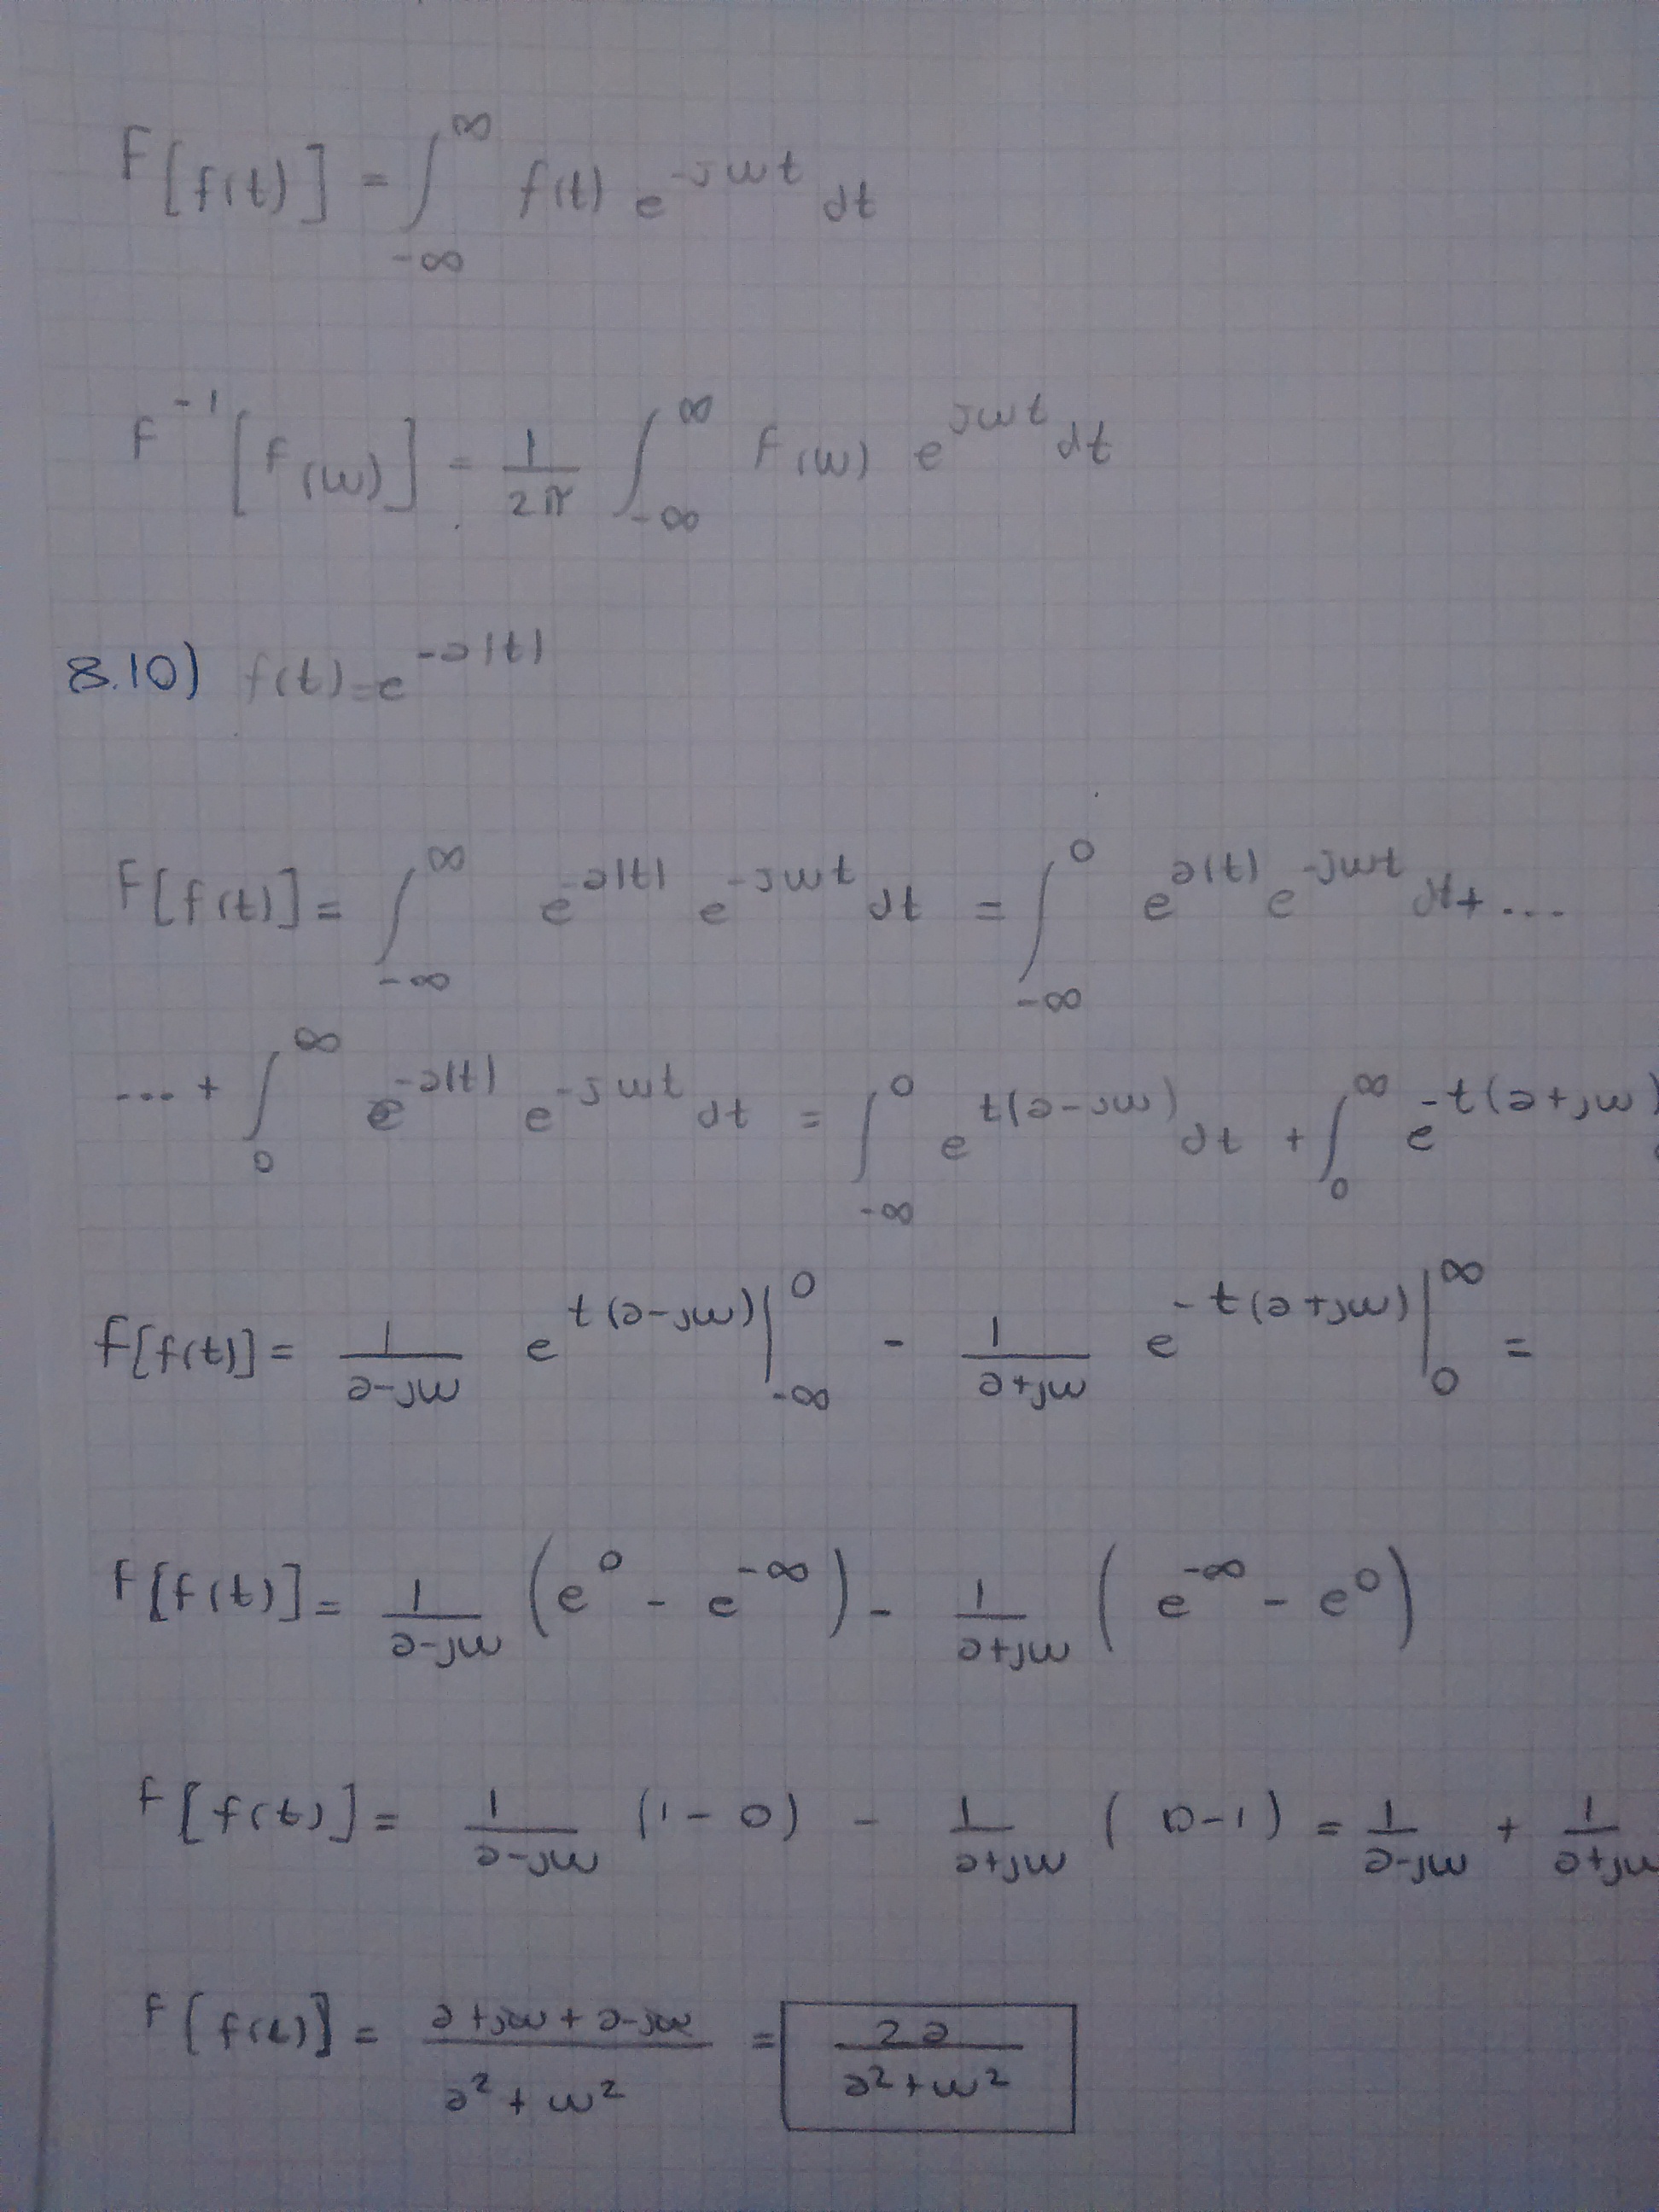 F[f(t)] = ∫_{-∞}^{∞} f(t) e^{-jωt} dt
F^{-1}[F(ω)] = 1/2π ∫_{-∞}^{∞} F(ω) e^{jωt} dt
8.10) f(t)=e^{-a|t|}
F[f(t)] = ∫_{-∞}^{∞} e^{-a|t|} e^{-jωt} dt = ∫_{-∞}^{0} e^{a(t)} e^{-jωt} dt + ...
... + ∫_{0}^{∞} e^{-a(t)} e^{-jωt} dt = ∫_{-∞}^{0} e^{t(a-jω)} dt + ∫_{0}^{∞} e^{-t(a+jω)}
F[f(t)] = 1/(a-jω) e^{t(a-jω)} |_{-∞}^{0} - 1/(a+jω) e^{-t(a+jω)} |_{0}^{∞} =
F[f(t)] = 1/(a-jω) (e^{0} - e^{-∞}) - 1/(a+jω) (e^{-∞} - e^{0})
F[f(t)] = 1/(a-jω) (1-0) - 1/(a+jω) (0-1) = 1/(a-jω) + 1/(a+jω
F[f(t)] = (a+jω+a-jω)/(a²+ω²) = 2a/(a²+ω²)